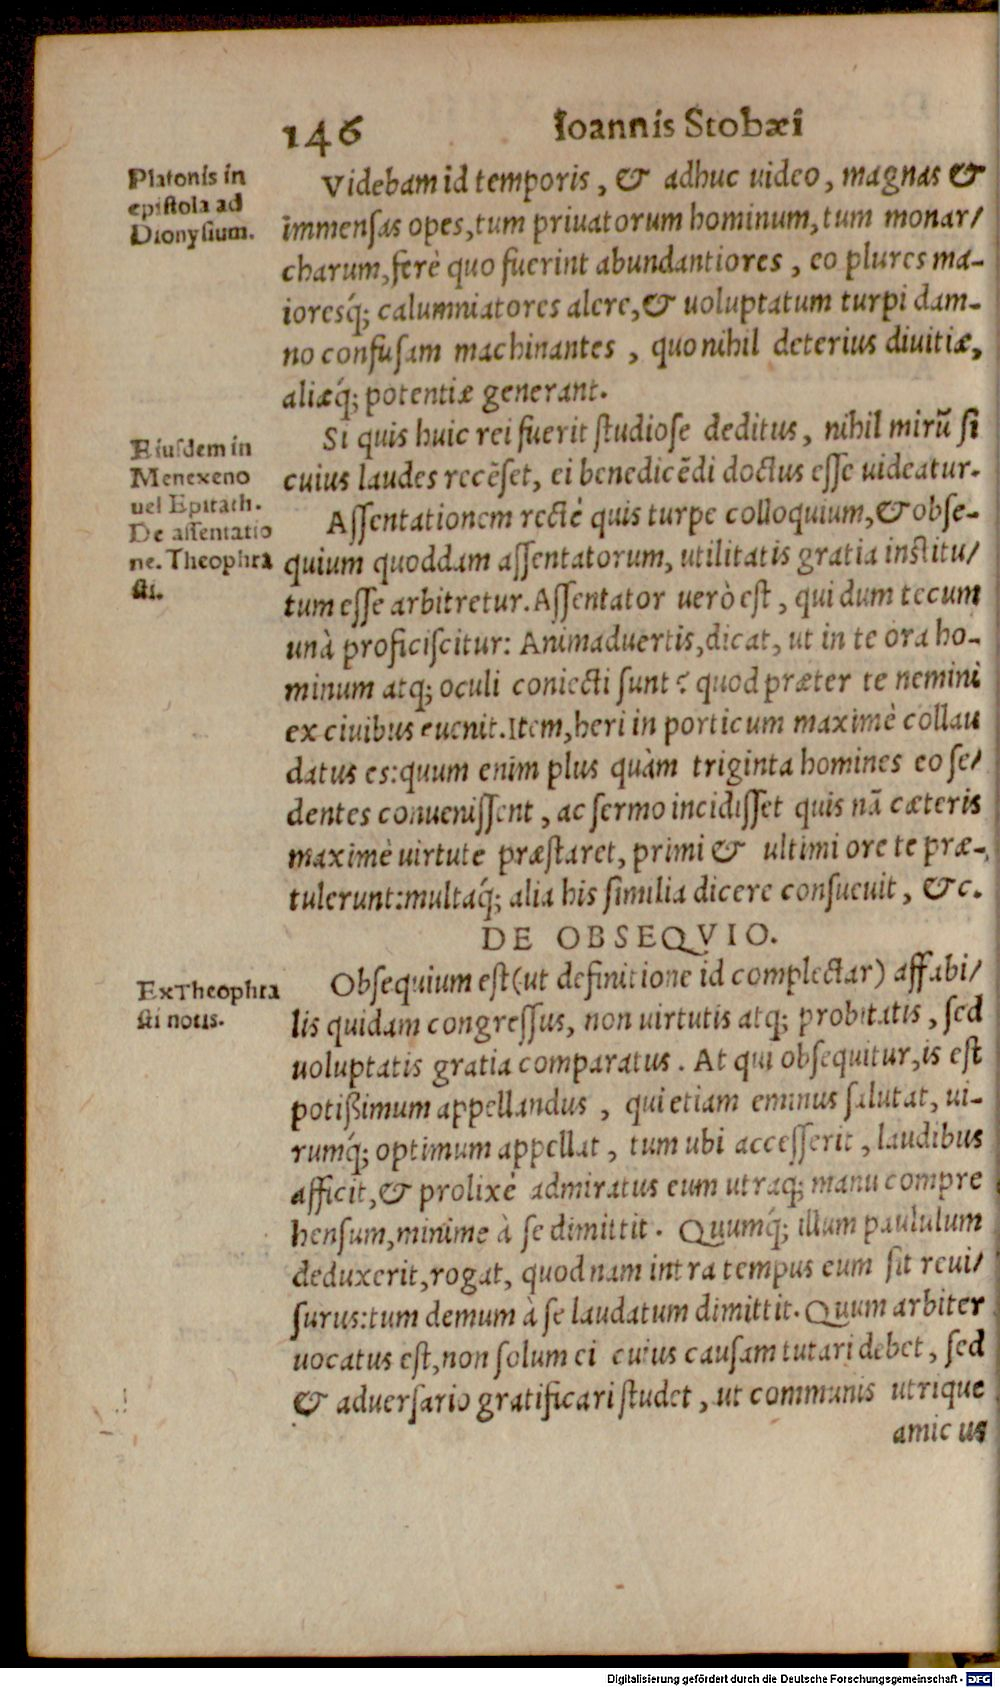 146 Ioannis Stobæi
Platonis in
epistola ad
Dionysium.
Videbam id temporis, & adhuc uideo, magnas &
immensas opes, tum priuatorum hominum, tum monar/
charum, ferè quo fuerint abundantiores, eo plures ma-
ioresq́; calumniatores alere, & uoluptatum turpi dam-
no confusam machinantes, quo nihil deterius diuitiæ,
aliæq́; potentiæ generant.
Eiusdem in
Menexeno
uel Epitath.
Si quis huic rei fuerit studiose deditus, nihil mirũ si
cuius laudes recẽset, ei benedicẽdi doctus esse uideatur.
De assentatio
ne. Theophra
sti.
Assentationem rectè quis turpe colloquium, & obse-
quium quoddam assentatorum, utilitatis gratia institu/
tum esse arbitretur. Assentator uerò est, qui dum tecum
unà proficiscitur: Animaduertis, dicat, ut in te ora ho-
minum atq; oculi coniecti sunt? quod præter te nemini
ex ciuibus euenit. Item, heri in porticum maximè collau
datus es: quum enim plus quàm triginta homines eo se/
dentes conuenissent, ac sermo incidisset quis nã cæteris
maximè uirtute præstaret, primi & ultimi ore te præ-
tulerunt: multaq́; alia his similia dicere consueuit, &c.
DE OBSEQVIO.
Ex Theophra
sti notis.
Obsequium est (ut definitione id complectar) affabi/
lis quidam congressus, non uirtutis atq; probitatis, sed
uoluptatis gratia comparatus. At qui obsequitur, is est
potißimum appellandus, qui etiam eminus salutat, ui-
rumq́; optimum appellat, tum ubi accesserit, laudibus
afficit, & prolixè admiratus eum utraq; manu compre
hensum, minime à se dimittit. Quumq́; illum paululum
deduxerit, rogat, quodnam intra tempus eum sit reui/
surus: tum demum à se laudatum dimittit. Quum arbiter
uocatus est, non solum ei cuius causam tutari debet, sed
& aduersario gratificari studet, ut communis utrique
amicus
Digitalisierung gefördert durch die Deutsche Forschungsgemeinschaft - DFG